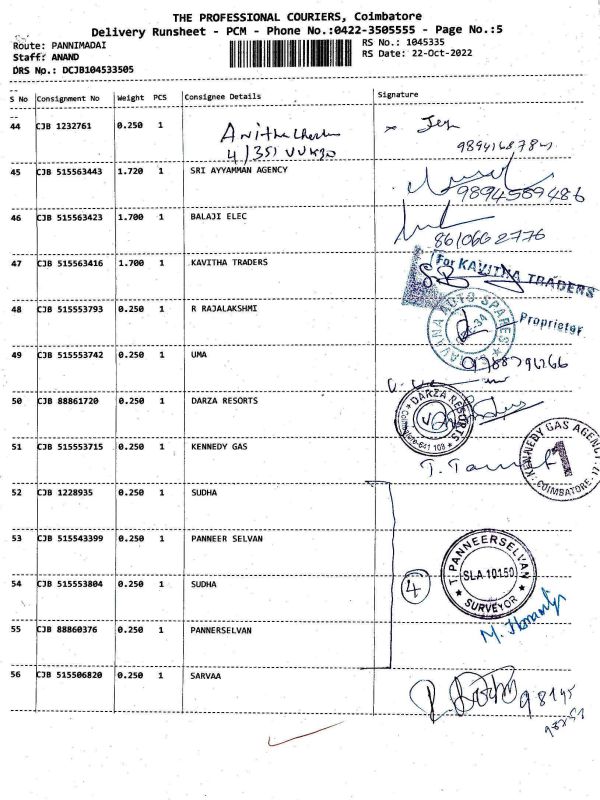 THE PROFESSIONAL COURIERS, Coimbatore
Delivery Runsheet - PCM - Phone No.:0422-3505555 - Page No.:5
Route: PANNIMADAI
RS No.: 1045335
Staff: ANAND
RS Date: 22-Oct-2022
DRS No.: DCJB104533505
S No Consignment No Weight PCS Consignee Details Signature
44 CJB 1232761 0.250 1
4/351
45 CJB 515563443 1.720 1 SRI AYYAMMAN AGENCY
9894559486
46 CJB 515563423 1.700 1 BALAJI ELEC
8610662776
47 CJB 515563416 1.700 1 KAVITHA TRADERS
For KAVITHA TRADERS
Proprietor
48 CJB 515553793 0.250 1 R RAJALAKSHMI
AUTO SPARES
49 CJB 515553742 0.250 1 UMA
50 CJB 88861720 0.250 1 DARZA RESORTS
DARZA RESORTS
51 CJB 515553715 0.250 1 KENNEDY GAS
KENNEDY GAS AGENCY
1
COIMBATORE
52 CJB 1228935 0.250 1 SUDHA
53 CJB 515543399 0.250 1 PANNEER SELVAN
T. PANNEERSELVAN
SLA 10150
SURVEYOR
54 CJB 515553804 0.250 1 SUDHA
4
55 CJB 88860376 0.250 1 PANNERSELVAN
56 CJB 515506820 0.250 1 SARVAA